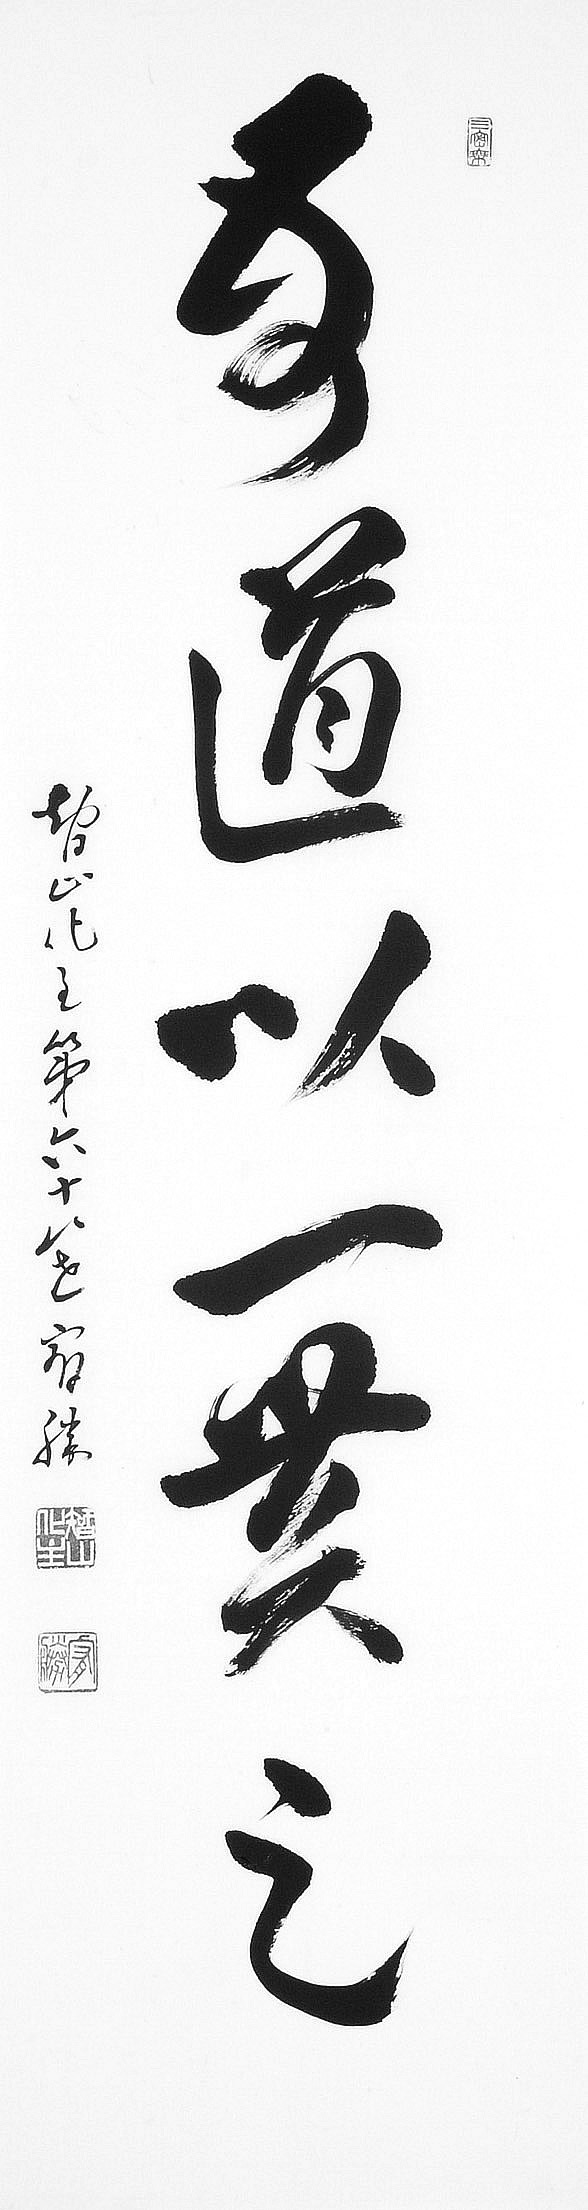 吾道以一貫之
智山化主第六十八世宥勝
智山化主
宥勝